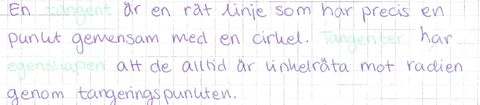 En tangent är en rät linje som har precis en
punkt gemensam med en cirkel. Tangenter har
egenskapen att de alltid är vinkelräta mot radien
genom tangeringspunkten.